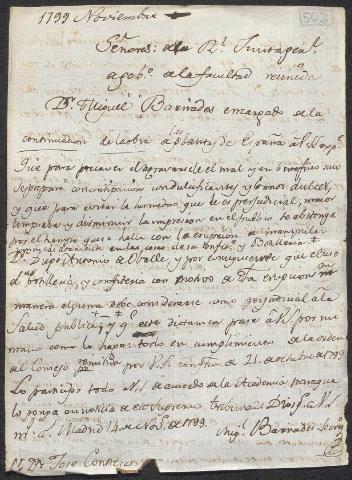 1799 Noviembre
502
Señores: de la Rl. Junta gen.l
de gob.o de la facultad reunida
Dn. Miguel Barnades encargado de la
continuacion de la obra de plantas de España
que para precaver el agravarsele el mal y en beneficio suyo
se prepare con dulcificantes y baños dulces,
y que para evitar la humedad que le es perjudicial, mayor
limpieza y disminuir la impresion en el publico se abstenga
por el tiempo que halle con la erupcion de manipular
por si la botica en las cosas de su Confit.a y Botilleria
Dn. Antonio de Ovalle, y por consiguiente que el uso
de botilleria, y confiteria con motivo de erupcion en
manera alguna debe considerarse como perjudicial a la
Salud publica y q.e este dictamen pase a V.S. por mi
mano como lo hago: todo en cumplimiento de la orden
del Consejo remitida por V.S. con fha de 21 de octubre de 1799
Lo participo todo a V.S. de acuerdo de la Academia para que
lo ponga en noticia de ese Supremo tribunal Dios g.e a V.S.
m.s a.s Madrid 14 de Nov.e de 1799.
Mig.l Barnades Secr.o
Sr. Dn. Jose Contreras